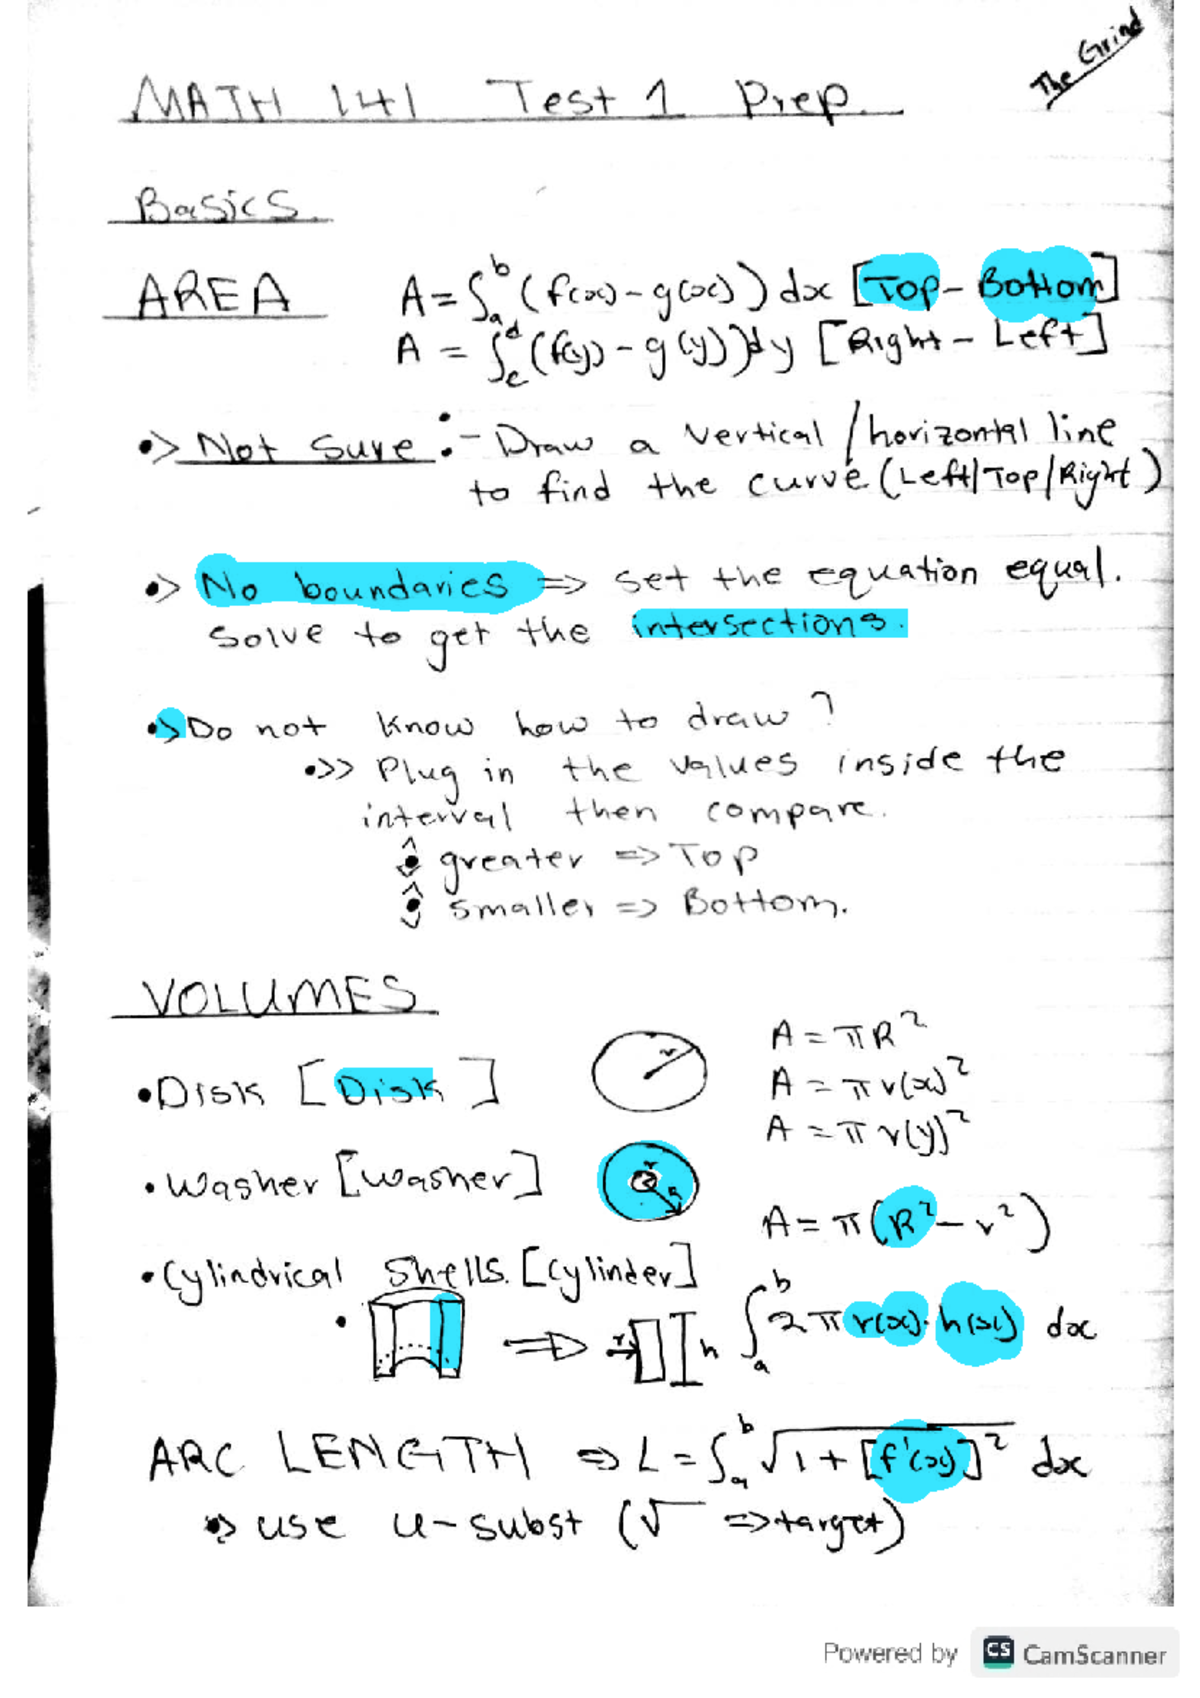 The Grind
MATH 141 Test 1 Prep.
Basics.
AREA A = ∫ₐᵇ (f(x) - g(x)) dx [Top - Bottom]
A = ∫꜀ᵈ (f(y) - g(y)) dy [Right - Left]
•> Not Sure :- Draw a vertical / horizontal line
to find the curve (Left/Top/Right)
•> No boundaries => set the equation equal.
solve to get the intersections.
•> Do not know how to draw?
•>> Plug in the values inside the
interval then compare.
greater => Top
smaller => Bottom.
VOLUMES
• Disk [Disk] r A = πR²
A = π r(x)²
A = π r(y)²
• Washer [Washer] r R A = π(R² - r²)
• Cylindrical Shells. [Cylinder]
• => r h ∫ₐᵇ 2π r(x)·h(x) dx
ARC LENGTH => L = ∫ₐᵇ √1 + [f'(x)]² dx
•> use u-subst (√ => target)
Powered by CS CamScanner